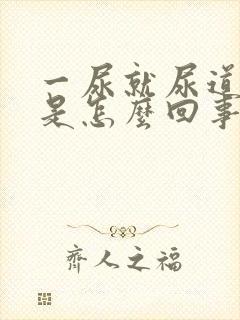 一尿就尿道
是怎麼回事
齊人之福